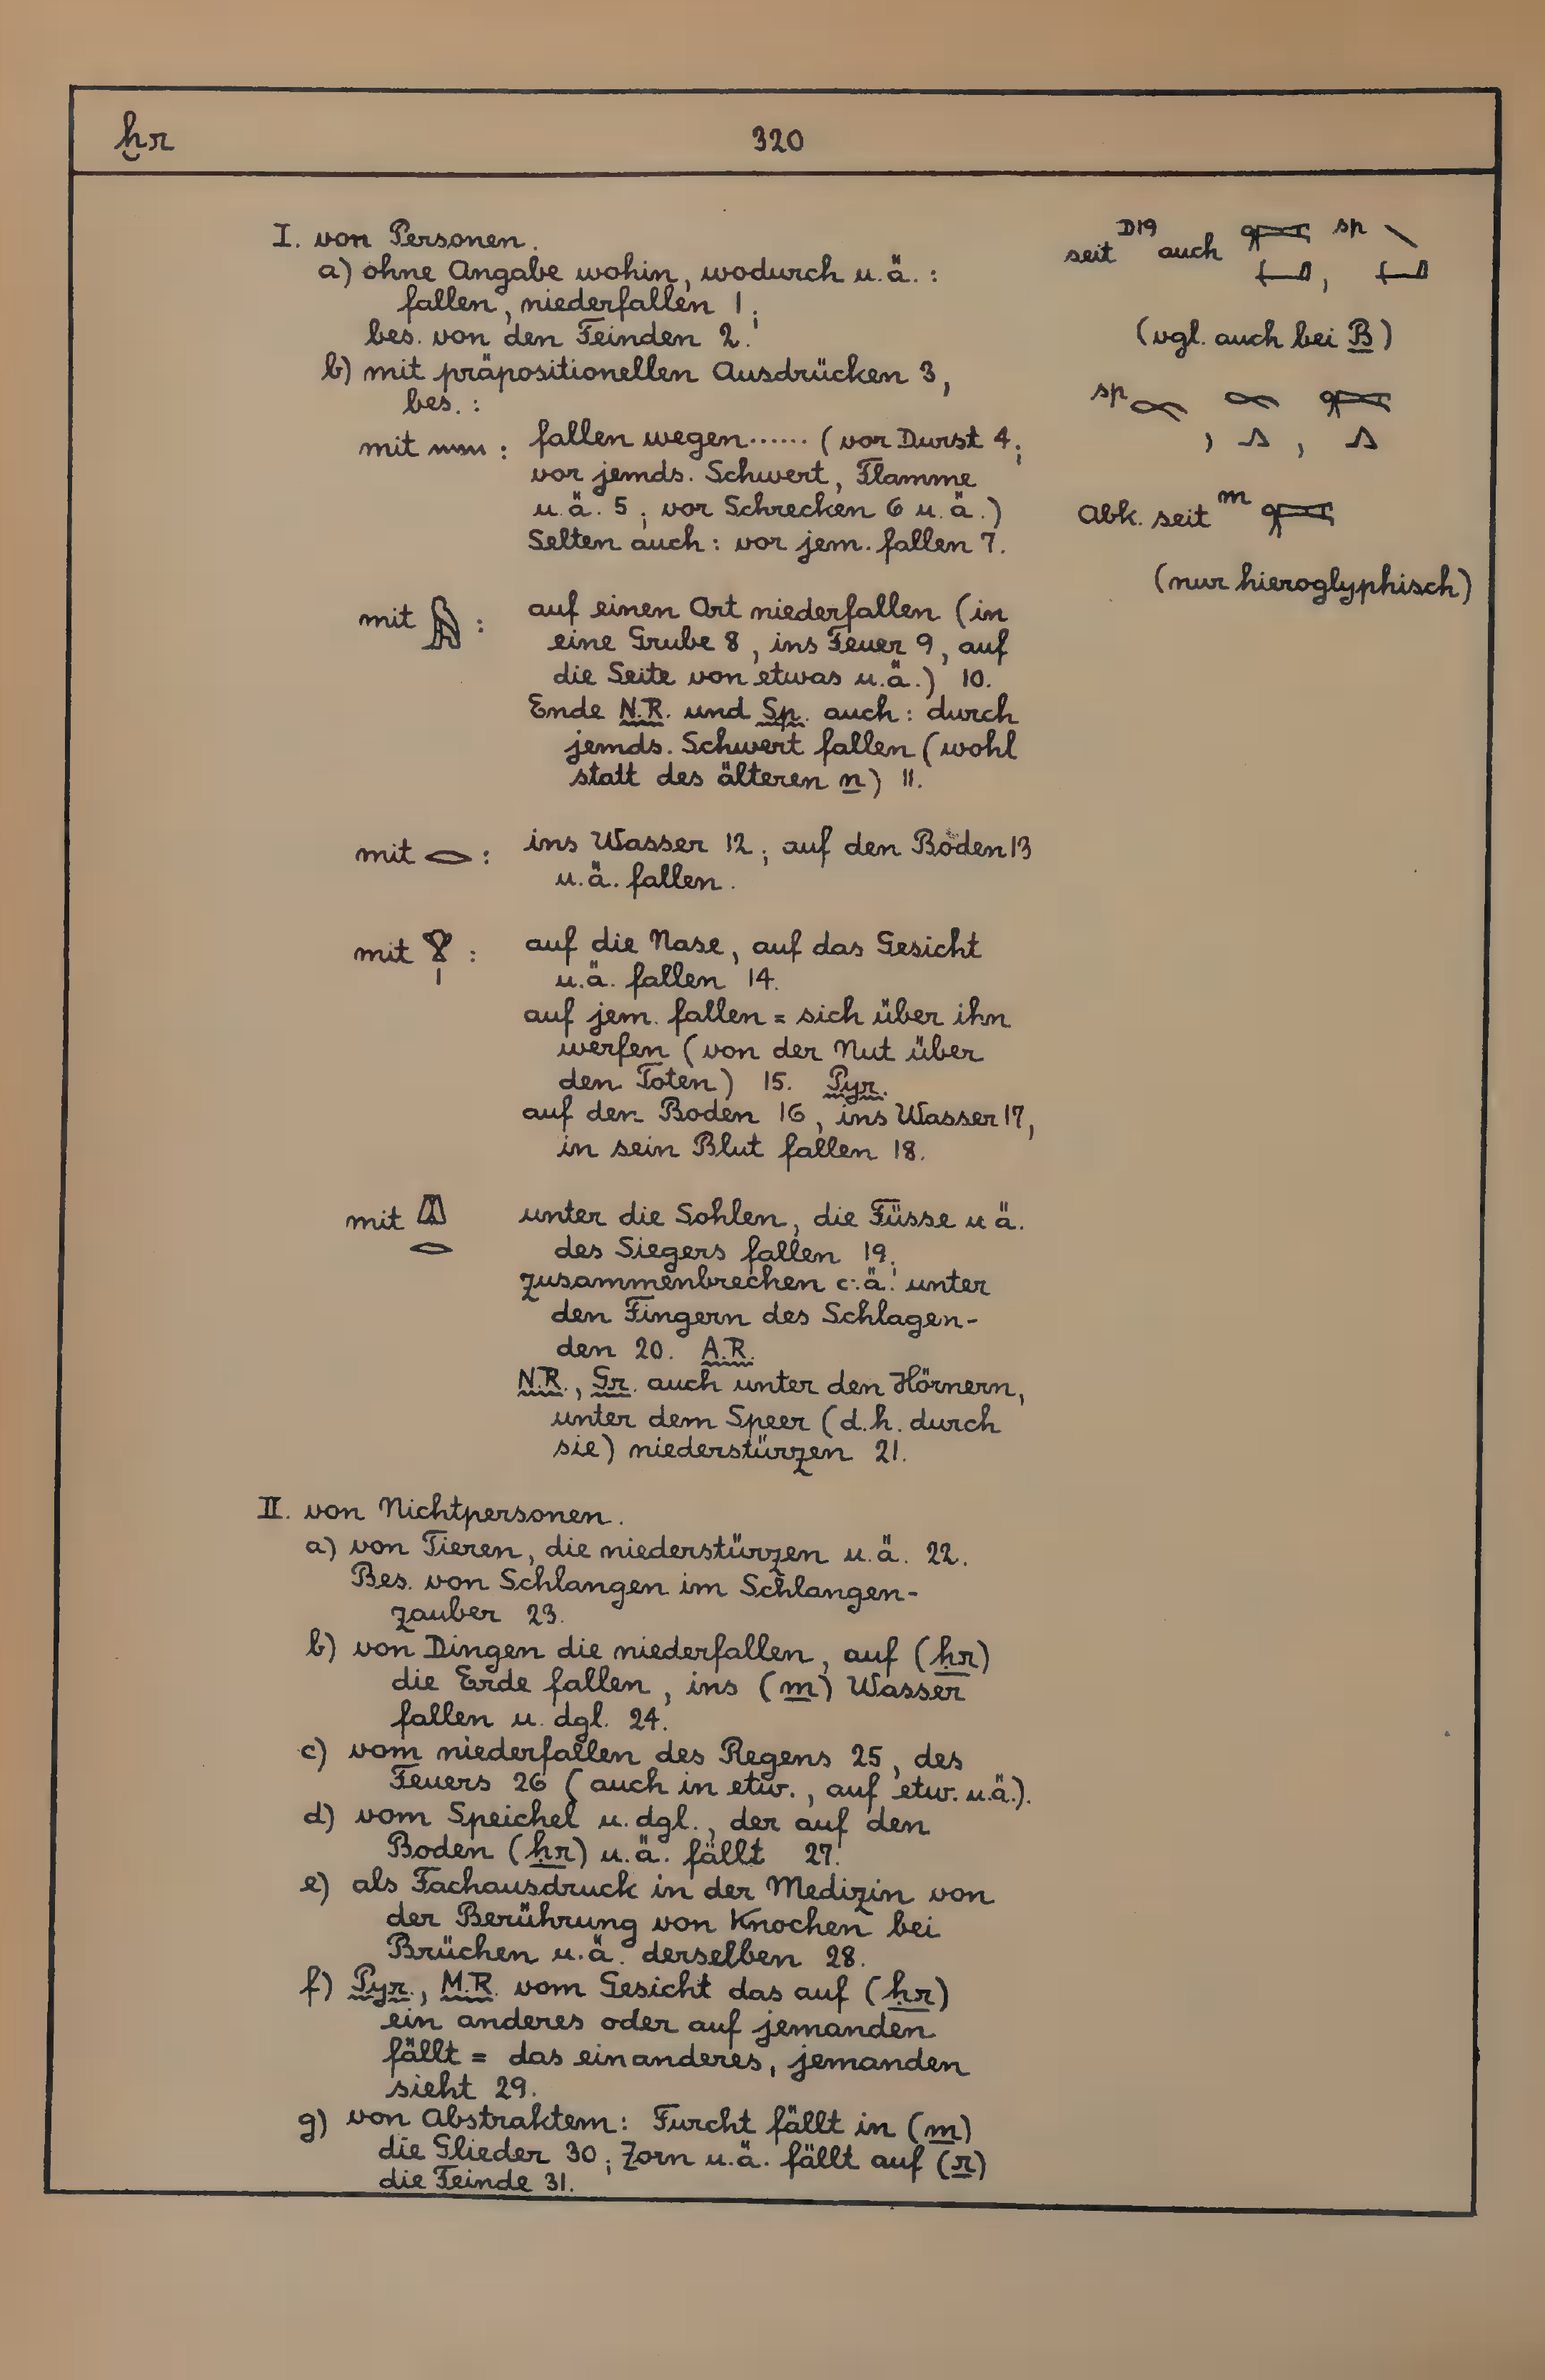 ḫr
320
I. von Personen.
a) ohne Angabe wohin, wodurch u.ä.:
fallen, niederfallen 1;
bes. von den Feinden 2.
b) mit präpositionellen Ausdrücken 3,
bes.:
mit 𓈖 : fallen wegen...... (vor Durst 4;
vor jemds. Schwert, Flamme
u.ä. 5; vor Schrecken 6 u.ä.)
Selten auch: vor jem. fallen 7.
mit 𓅓 : auf einen Ort niederfallen (in
eine Grube 8, ins Feuer 9, auf
die Seite von etwas u.ä.) 10.
Ende N.R. und Sp. auch: durch
jemds. Schwert fallen (wohl
statt des älteren n) 11.
mit 𓂋 : ins Wasser 12; auf den Boden 13
u.ä. fallen.
mit 𓁷𓏤 : auf die Nase, auf das Gesicht
u.ä. fallen 14.
auf jem. fallen = sich über ihn
werfen (von der Nut über
den Toten) 15. Pyr.
auf den Boden 16, ins Wasser 17,
in sein Blut fallen 18.
mit 𓌨𓂋 unter die Sohlen, die Füsse u ä.
des Siegers fallen 19;
zusammenbrechen o.ä. unter
den Fingern des Schlagen-
den 20. A.R.
N.R., Gr. auch unter den Hörnern,
unter dem Speer (d.h. durch
sie) niederstürzen 21.
II. von Nichtpersonen.
a) von Tieren, die niederstürzen u.ä. 22.
Bes. von Schlangen im Schlangen-
zauber 23.
b) von Dingen die niederfallen, auf (ḥr)
die Erde fallen, ins (m) Wasser
fallen u. dgl. 24.
c) vom niederfallen des Regens 25, des
Feuers 26 (auch in etw., auf etw. u.ä.).
d) vom Speichel u. dgl., der auf den
Boden (ḥr) u.ä. fällt 27.
e) als Fachausdruck in der Medizin von
der Berührung von Knochen bei
Brüchen u.ä. derselben 28.
f) Pyr., M.R. vom Gesicht das auf (ḥr)
ein anderes oder auf jemanden
fällt = das ein anderes, jemanden
sieht 29.
g) von Abstraktem: Furcht fällt in (m)
die Glieder 30; Zorn u.ä. fällt auf (r)
die Feinde 31.
seit D19 auch , sp
(vgl. auch bei B)
sp , ,
Abk. seit m
(nur hieroglyphisch)